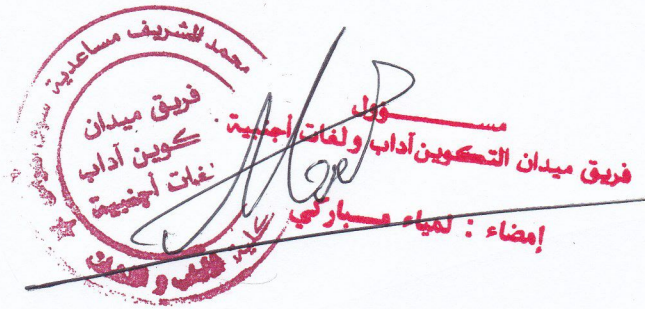 محمد الشريف مساعدية سوق
فريق ميدان
كوين آداب
لغات أجنبية
كلية الآداب و اللغات
مســـــؤول
فريق ميدان التكوين آداب ولغات أجنبية
إمضاء : لمياء مباركي